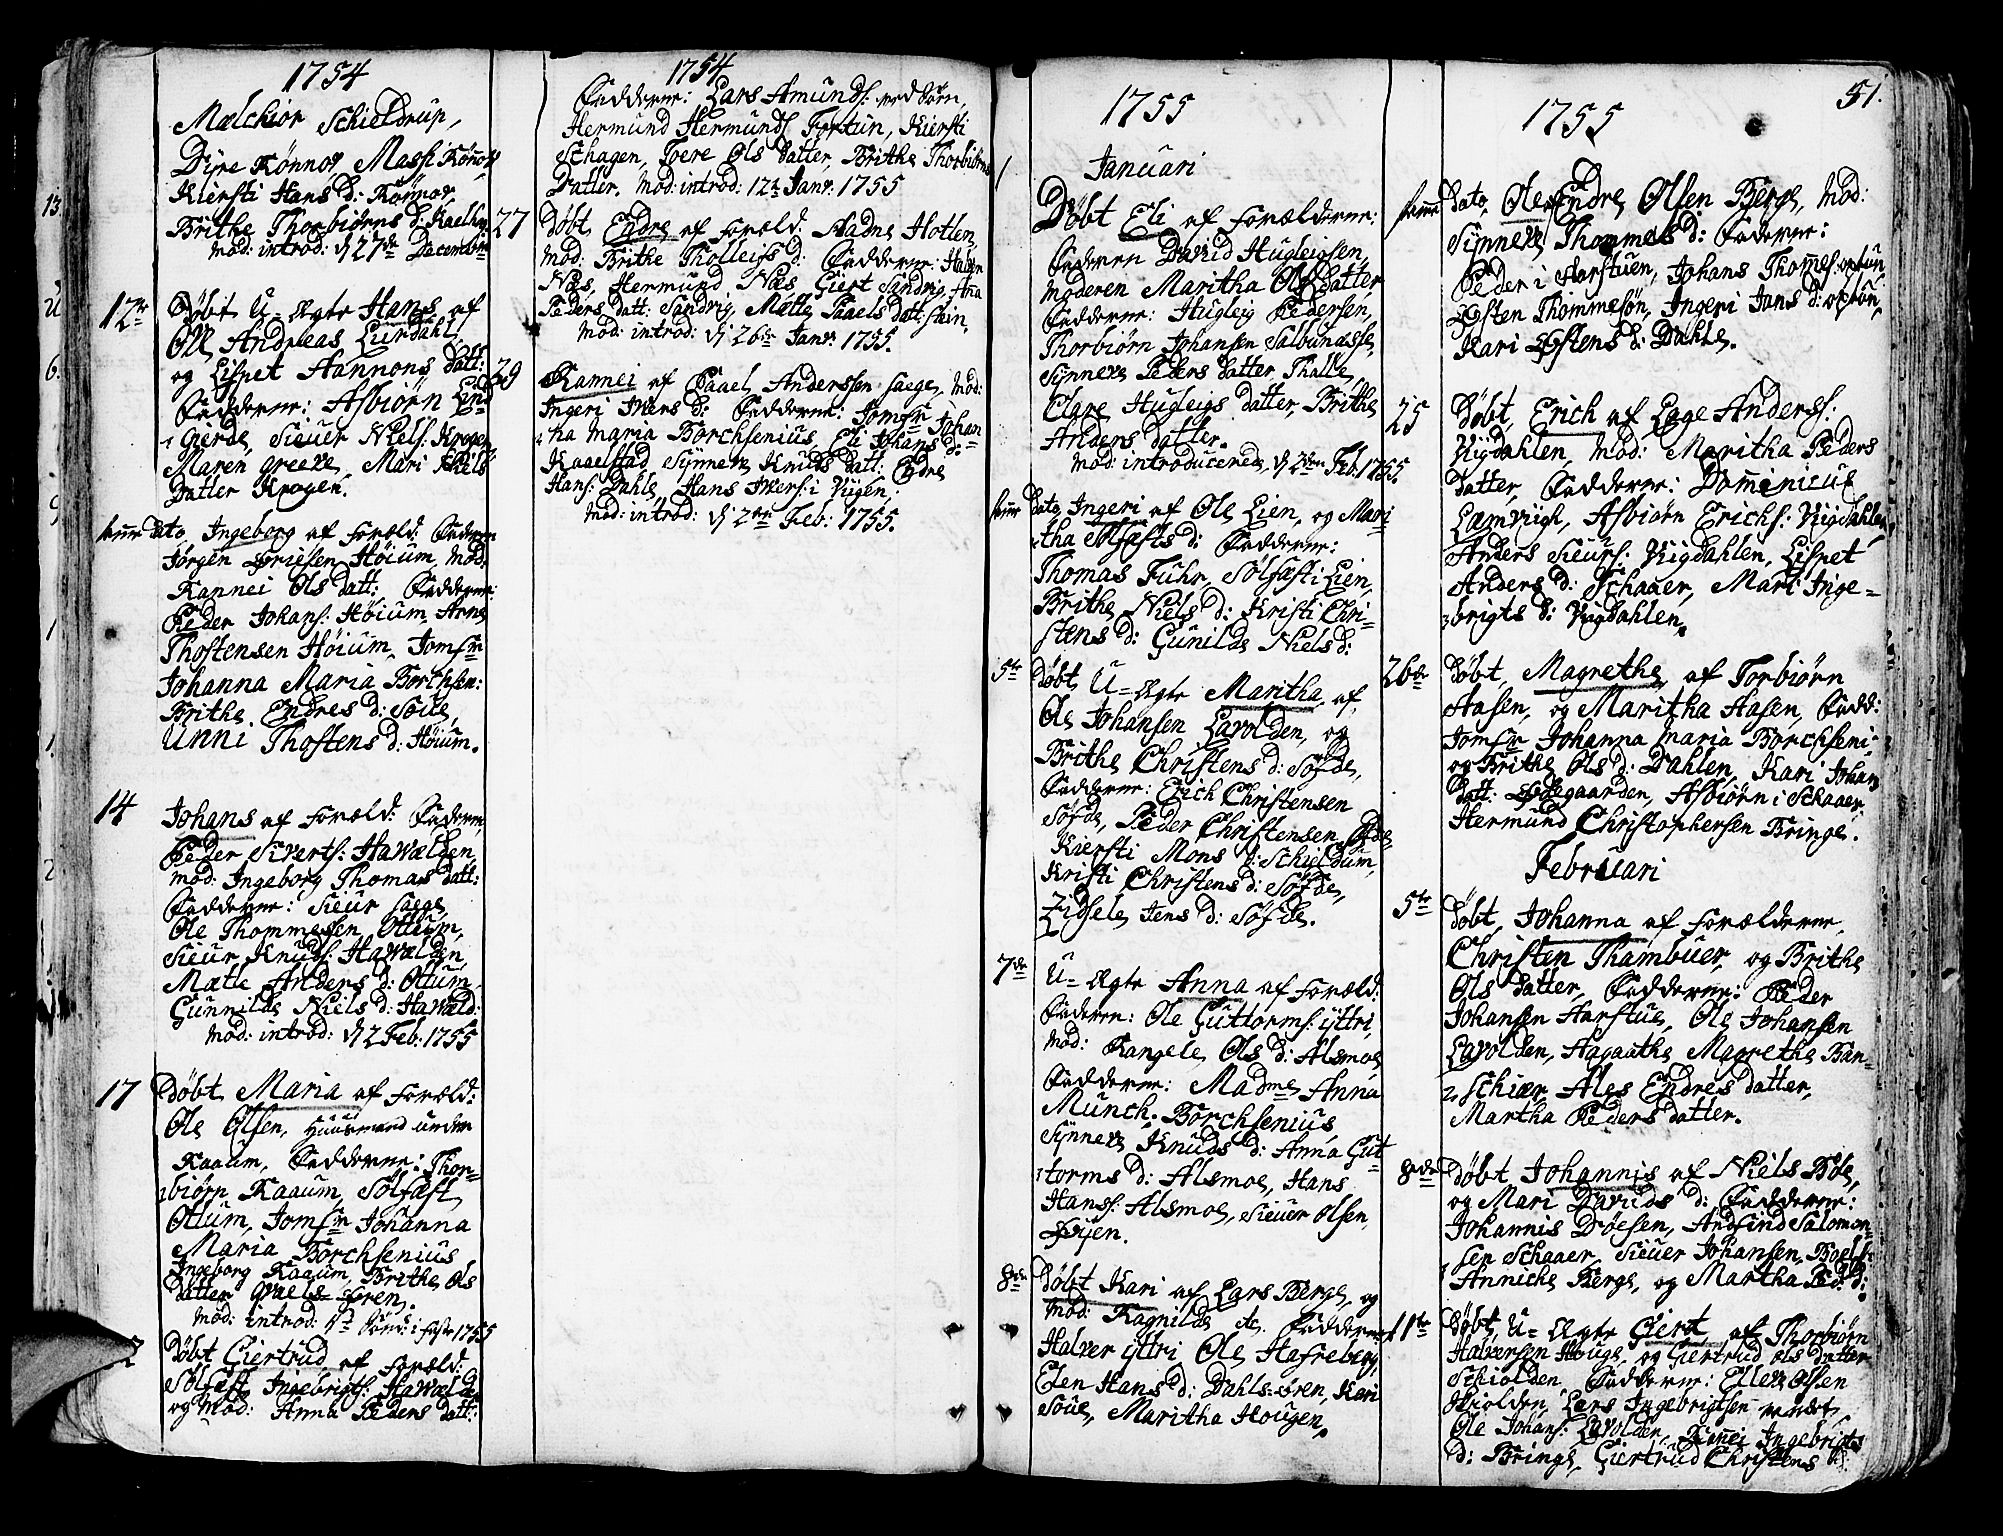 1754
Mælchior Schieldrup,
Dÿre Kønnor Massi
Kiersti Hans d: Kønnor,
Brithe Thorbiørns d:
Mod: introd: d 27de Decembr
12te Døbt U-ægte Hans af
Ole Andreas Lurdahl,
og Lispet Hannons datt:
Fadderne: Asbiørn
Gierde, Sieuer Niels: Krogen
Maren greeve, Mari Niels
Datter Krogen.
samme Dato, Ingeborg af Foræld: Faderen
Jørgen Høium, Mod:
Rannei Ols datt: Fadderne:
Peder Johans: Høium, Arne
Thostensen Høium, Jomfr
Johanna Maria Borchsen:
Brithe Endres d: Soue,
Unni Thostens d: Høium.
14 Johans af Foræld: Faderen,
Peder Siverts: Hawælden,
Mod: Ingeborg Thomas datt:
Fadderne: Sieur Saege,
Ole Thommesen Ottum,
Sieur Knuds: Hawælden,
Mætle Anders d: Otum,
Gunnilde Niels d: Hawæld:
Mod: introd: d 2 Feb: 1755
17 Døbt Maria af Foræld:
Ole Olsen, Huusmand under
Kaaum, Fadderne: Thor-
biørn Kaaum, Solfæst
Otum, Jomfr Johanna
Maria Borchsenius
Ingeborg Kaaum, Brithe Ols
Datter
Mod: introd: 1te Sønd: i faste 1755
Døbt Giertrud af Foræld:
Solfæst Ingebrigts: Hawælde
og Mod: Anna Peders datt:
1754
Fadderne: Lars Amunds:
Hermund Hermunds: Fortun, Kiersti
Schagen, Ols datter, Brithe Thorbiørns
Datter. Mod: introd: 12te Janr: 1755
27 Døbt Endre af Foræld: Hadne Hotlen,
Mod: Brithe Tholleifs d: Fadderne: Halvor
Næs, Hermund Næs, Giert Sandvig, Anna
Peders datt: Sandvig, Mætte Paaels datt:
Mod: introd: d 26de Janr: 1755.
29 Rannei af Paael Anderssen Saege, Mod:
Ingeri Iwers d: Fadderne: Jomfr Johan-
na Maria Borchsenius, Eli Johans d:
Kaaelstad, Synneve Knuds datt: Endre
Hans: Dahle, Hans Iwers: i Viigen,
Mod: introd: d 2den Feb: 1755.
1755
Januari
1 Døbt Eli af Forælderne:
Faderen David Hugleigsen,
Moderen Maritha Olsdatter
Fadderne: Hugleig Pedersen,
Thorbiørn Johansen Salbunæsse,
Synneve Peders datter Thalle,
Clare Hugleigs datter, Brithe
Anders datter.
Mod: introduceret d 2den Feb 1755.
samme Dato, Ingeri af Ole Lien, og Mari-
tha Solfæsts d: Fadderne:
Thomas Fuhr, Solfæst i Lien,
Brithe Niels d: Kristi Chri-
stens d: Gunilde Niels d:
5te Døbt U-ægte Maritha af
Ole Johansen Lavolden, og
Brithe Christens d: Søfde,
Fadderne: Erich Christensen
Søfde, Peder Christensen
Kiersti Mons d: Schieldum,
Kristi Christens d: Søfde,
Zidsele Jens d: Søfde.
7de U-ægte Anna af Foræld:
Faderen: Ole Guttorms: ÿttri,
Mod: Rangele Ols d: Alsmoe,
Fadderne: Madme Anna
Munch Borchsenius,
Synneve Knuds d: Anna Gut-
torms d: Alsmoe, Hans
Hanss: Alsmoe, Sieuer Olsen,
Øyen.
8de Døbt Kari af Lars Berge, og
Mod: Ragnilde etc. Fadderne:
Halver ÿttri Ole Hafreberg,
Elen Hans d: Dahls-øren, Kari
Soue, Maritha Hougen.
51.
1755
samme Dato, Ole af Endre Olsen Berge, Mod:
Synneve Thommes d: Fadderne:
Peder i Aarstuen, Johans Thommes: optun,
Østen Thommesøn, Ingeri Jans d: optun,
Kari Østens d: Dahle.
25 Døbt, Erich af Lage Anderss:
Vigdahlen, Mod: Maritha Peders
datter, Fadderne: Dominicus
Lamvigh, Asbiørn Erichs: Vigdahlen,
Anders Sieurs: Vigdahlen, Lispet
Anders d: Schaaer, Mari Inge-
brigts d: Vigdahlen.
26de Døbt, Magrethe af Torbiørn
Aasen, og Maritha Aasen, Fadd:
Jomfr Johanna Maria Borchseni:
og Brithe Ols d: Dahlen, Kari Johans
Datt: Ødegaarden, Asbiørn i Schaaer,
Hermund Christophersen Bringe.
Februari
5te Døbt, Johanna af Forælderne,
Christen Thambuer, og Brithe
Ols datter, Fadderne: Peder
Johansen Aarstue, Ole Johansen
Lavolden, Aagaathe Magrethe Ban-
Schiær, Ales Endres datter,
Martha Peders datter.
8de Døbt Johannis af Niels Bøe,
og Mari Davids d: Fadderne:
Johannis Døesen, Andfind Salomon-
sen Schaaer, Sieuer Johansen,
Anniche Berge, og Martha Ped: d:
11te Døbt, U-ægte Giert af Thorbiørn
Halversen Houge, og Giertrud Ols datter
Schiolden Fadderne: Ellev Olsen
Skiolden, Lars Ingebrigtsen
Ole Johans: Lavolden, Rannei Ingebrigts
d: Bringe, Giertrud Christens d: